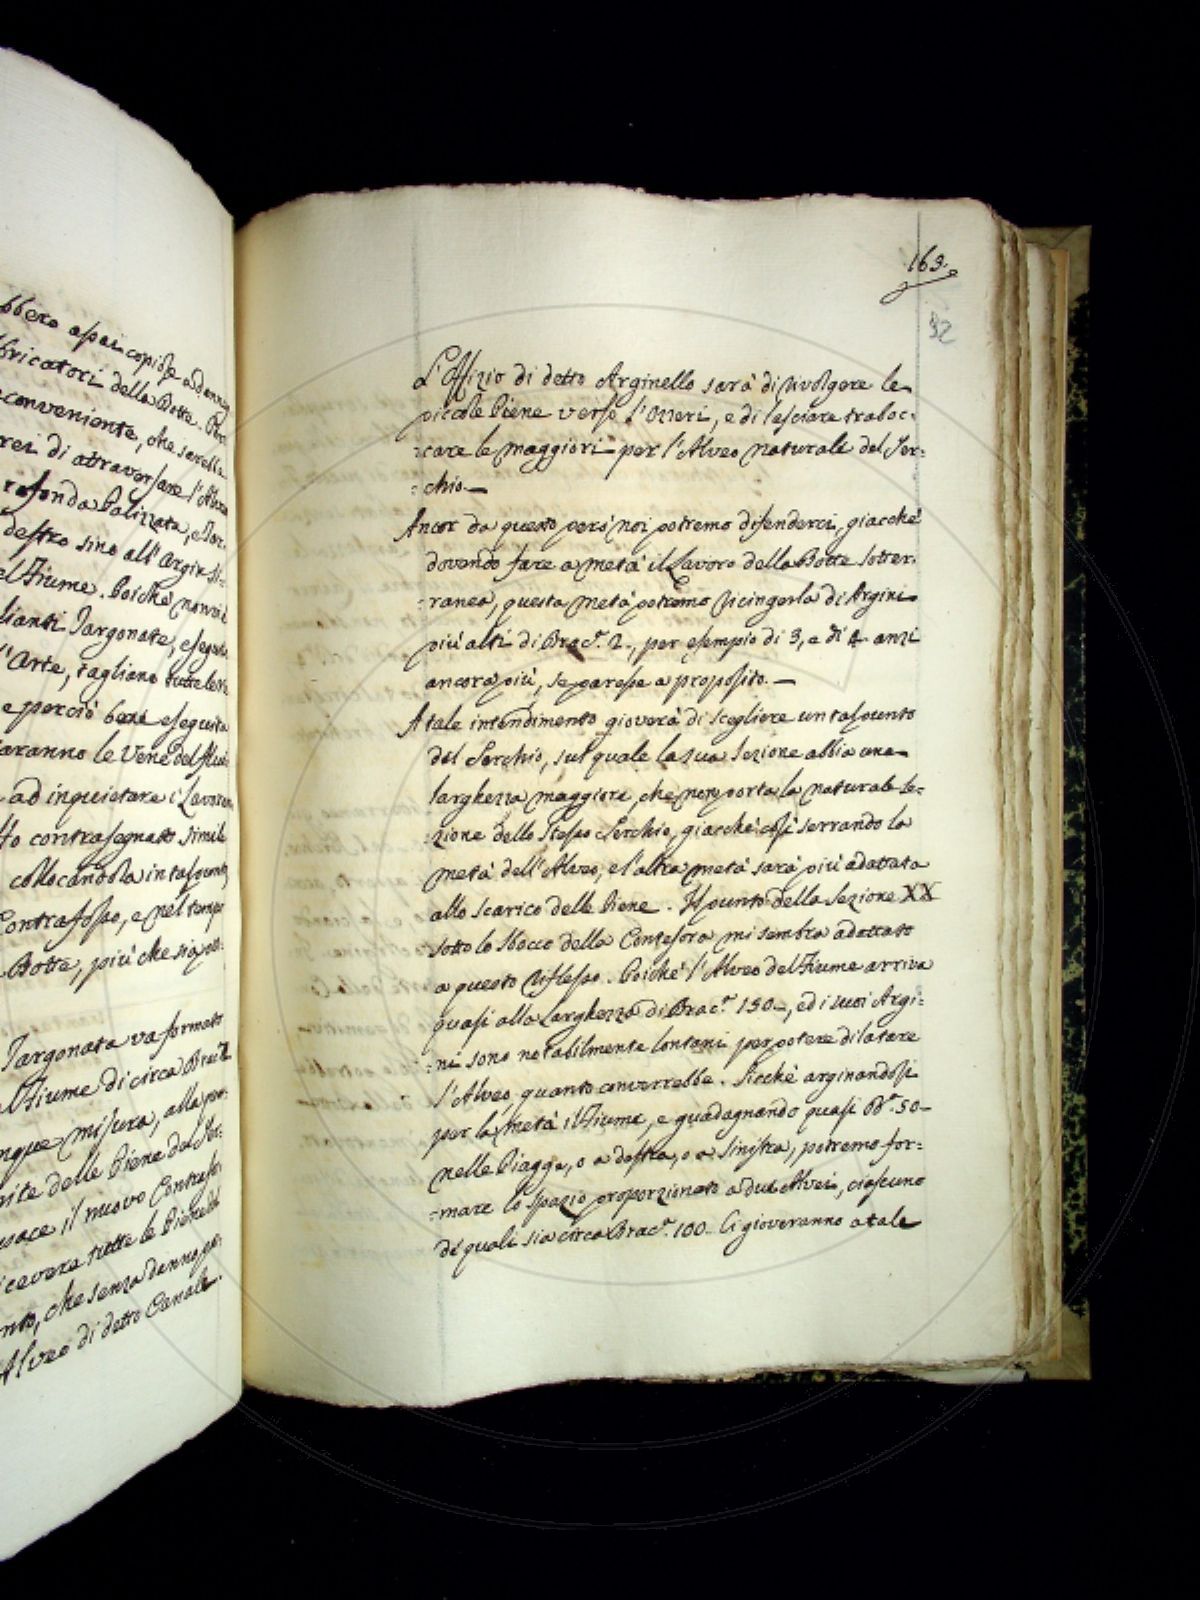 bbero assai copiose a danno
bricatori della Botte. Per
conveniente, che sarebbe
rei di attraversare l'Alveo
rofonda Palizzata, e Tar:
destro sino all'Argin si:
el Fiume. Poichè non vi
lianti Targonate, eseguite
l'Arte, tagliano tutte le Ve
e perciò bene eseguita
aranno le Vene del Flui
ad inquietare i Lavori
tto contrasegnato simile
collocandola in tal punto
Contrafosso, e nel tempo
Botte, più che sia po:
Targonata va formato
l Fiume di circa Brac.ª 2
nque misura, alla por:
nite delle Piene del Ser:
sace il nuovo Contrafo:
icevere tutte le Pienette
nto, che senza danno po:
Alveo di detto Canale.
163.
92
L'Offizio di detto Arginello sarà di rivolgere le
piccole Piene verso l'Ozzeri, e di lasciare traboc:
:care le maggiori per l'Alveo naturale del Ser:
:chio.
Ancor da questo però noi potremo difenderci, giacchè
dovendo fare a metà il Lavoro della Botte sotter:
:ranea, questa metà potremo ricingerla di Argini
più alti di Brac.ª 2., per esempio di 3, e di 4 anzi
ancora più, se paresse a proposito.
A tale intendimento gioverà di scegliere un tal punto
del Serchio, sul quale la sua Sezione abbia una
larghezza maggiore, che non porta la naturale Se:
:zione dello stesso Serchio, giacchè così serrando la
metà dell'Alveo, e l'altra metà sarà più adattata
allo scarico delle Piene. Il punto della Sezione XX
sotto lo sbocco della Contesora mi sembra adattato
a questo riflesso. Poichè l'Alveo del Fiume arriva
quasi alla Larghezza di Brac.ª 150., ed i suoi Argi:
:ni sono notabilmente lontani per potere dilatare
l'Alveo, quanto converrebbe. Sicchè arginandosi
per la metà il Fiume, e guadagnando quasi B.ª 50
nelle Piagge, o a destra, o a sinistra, potremo for:
:mare lo spazio proporzionato a due Alvei, ciascuno
de' quali sia circa Brac.ª 100. Ci gioveranno a tale